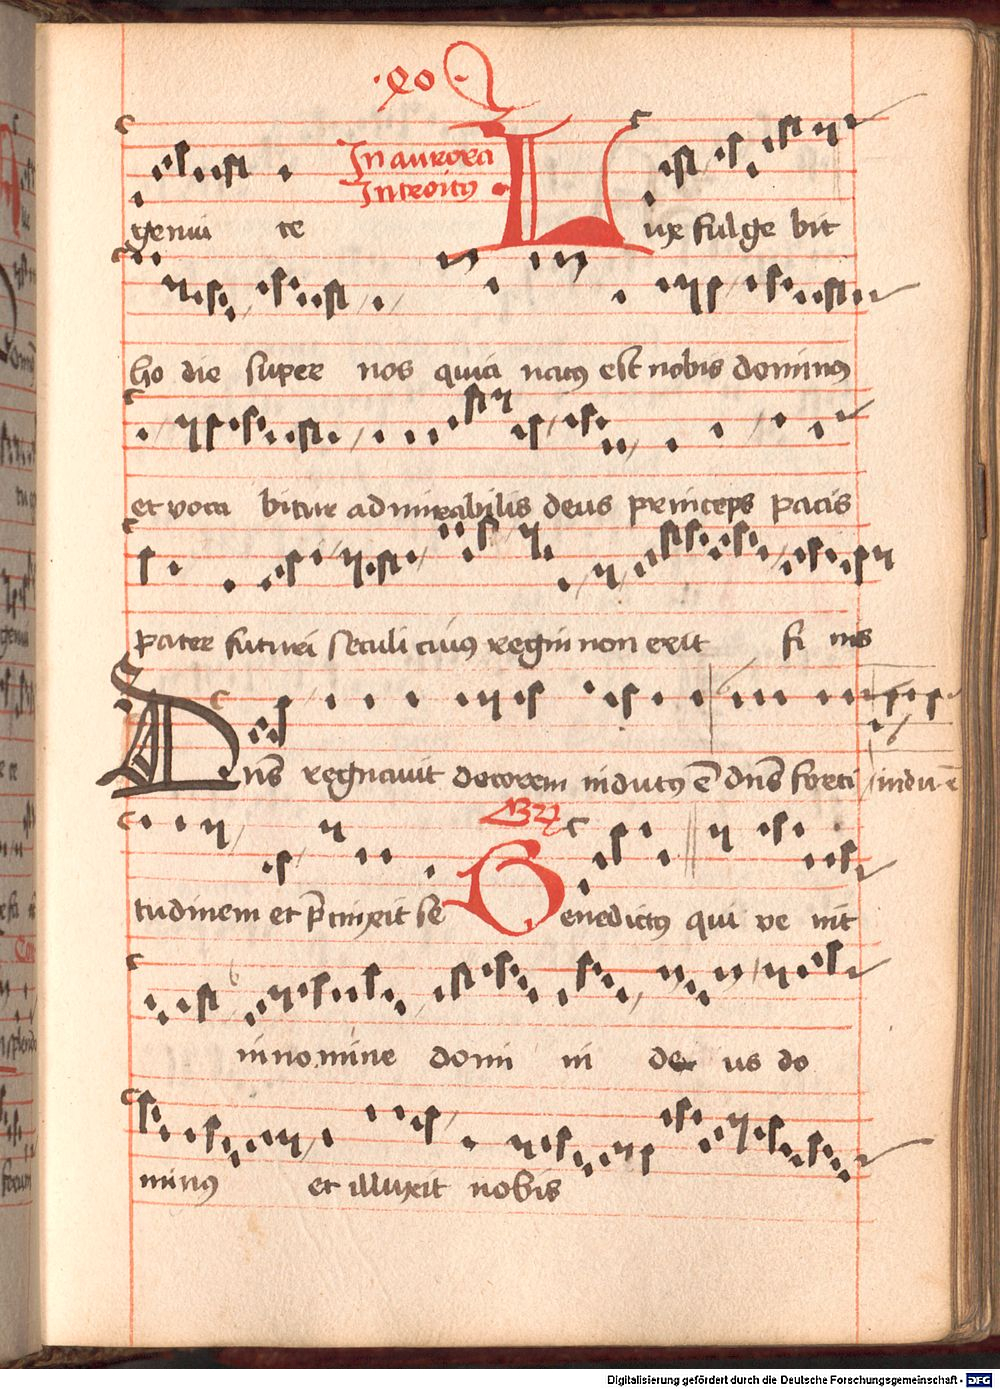 In aurora
Introitus
genui te Lux fulge bit
ho die super nos quia natus est nobis dominus
et voca bitur admirabilis deus princeps pacis
pater futuri seculi cuius regni non erit fi nis
Dns regnavit decorem indutus e dns forti indu e
tudinem et p cinxit se Benedictus qui ve nit
in nomine domi ni de us do
minus et illuxit nobis
Digitalisierung gefördert durch die Deutsche Forschungsgemeinschaft - DFG